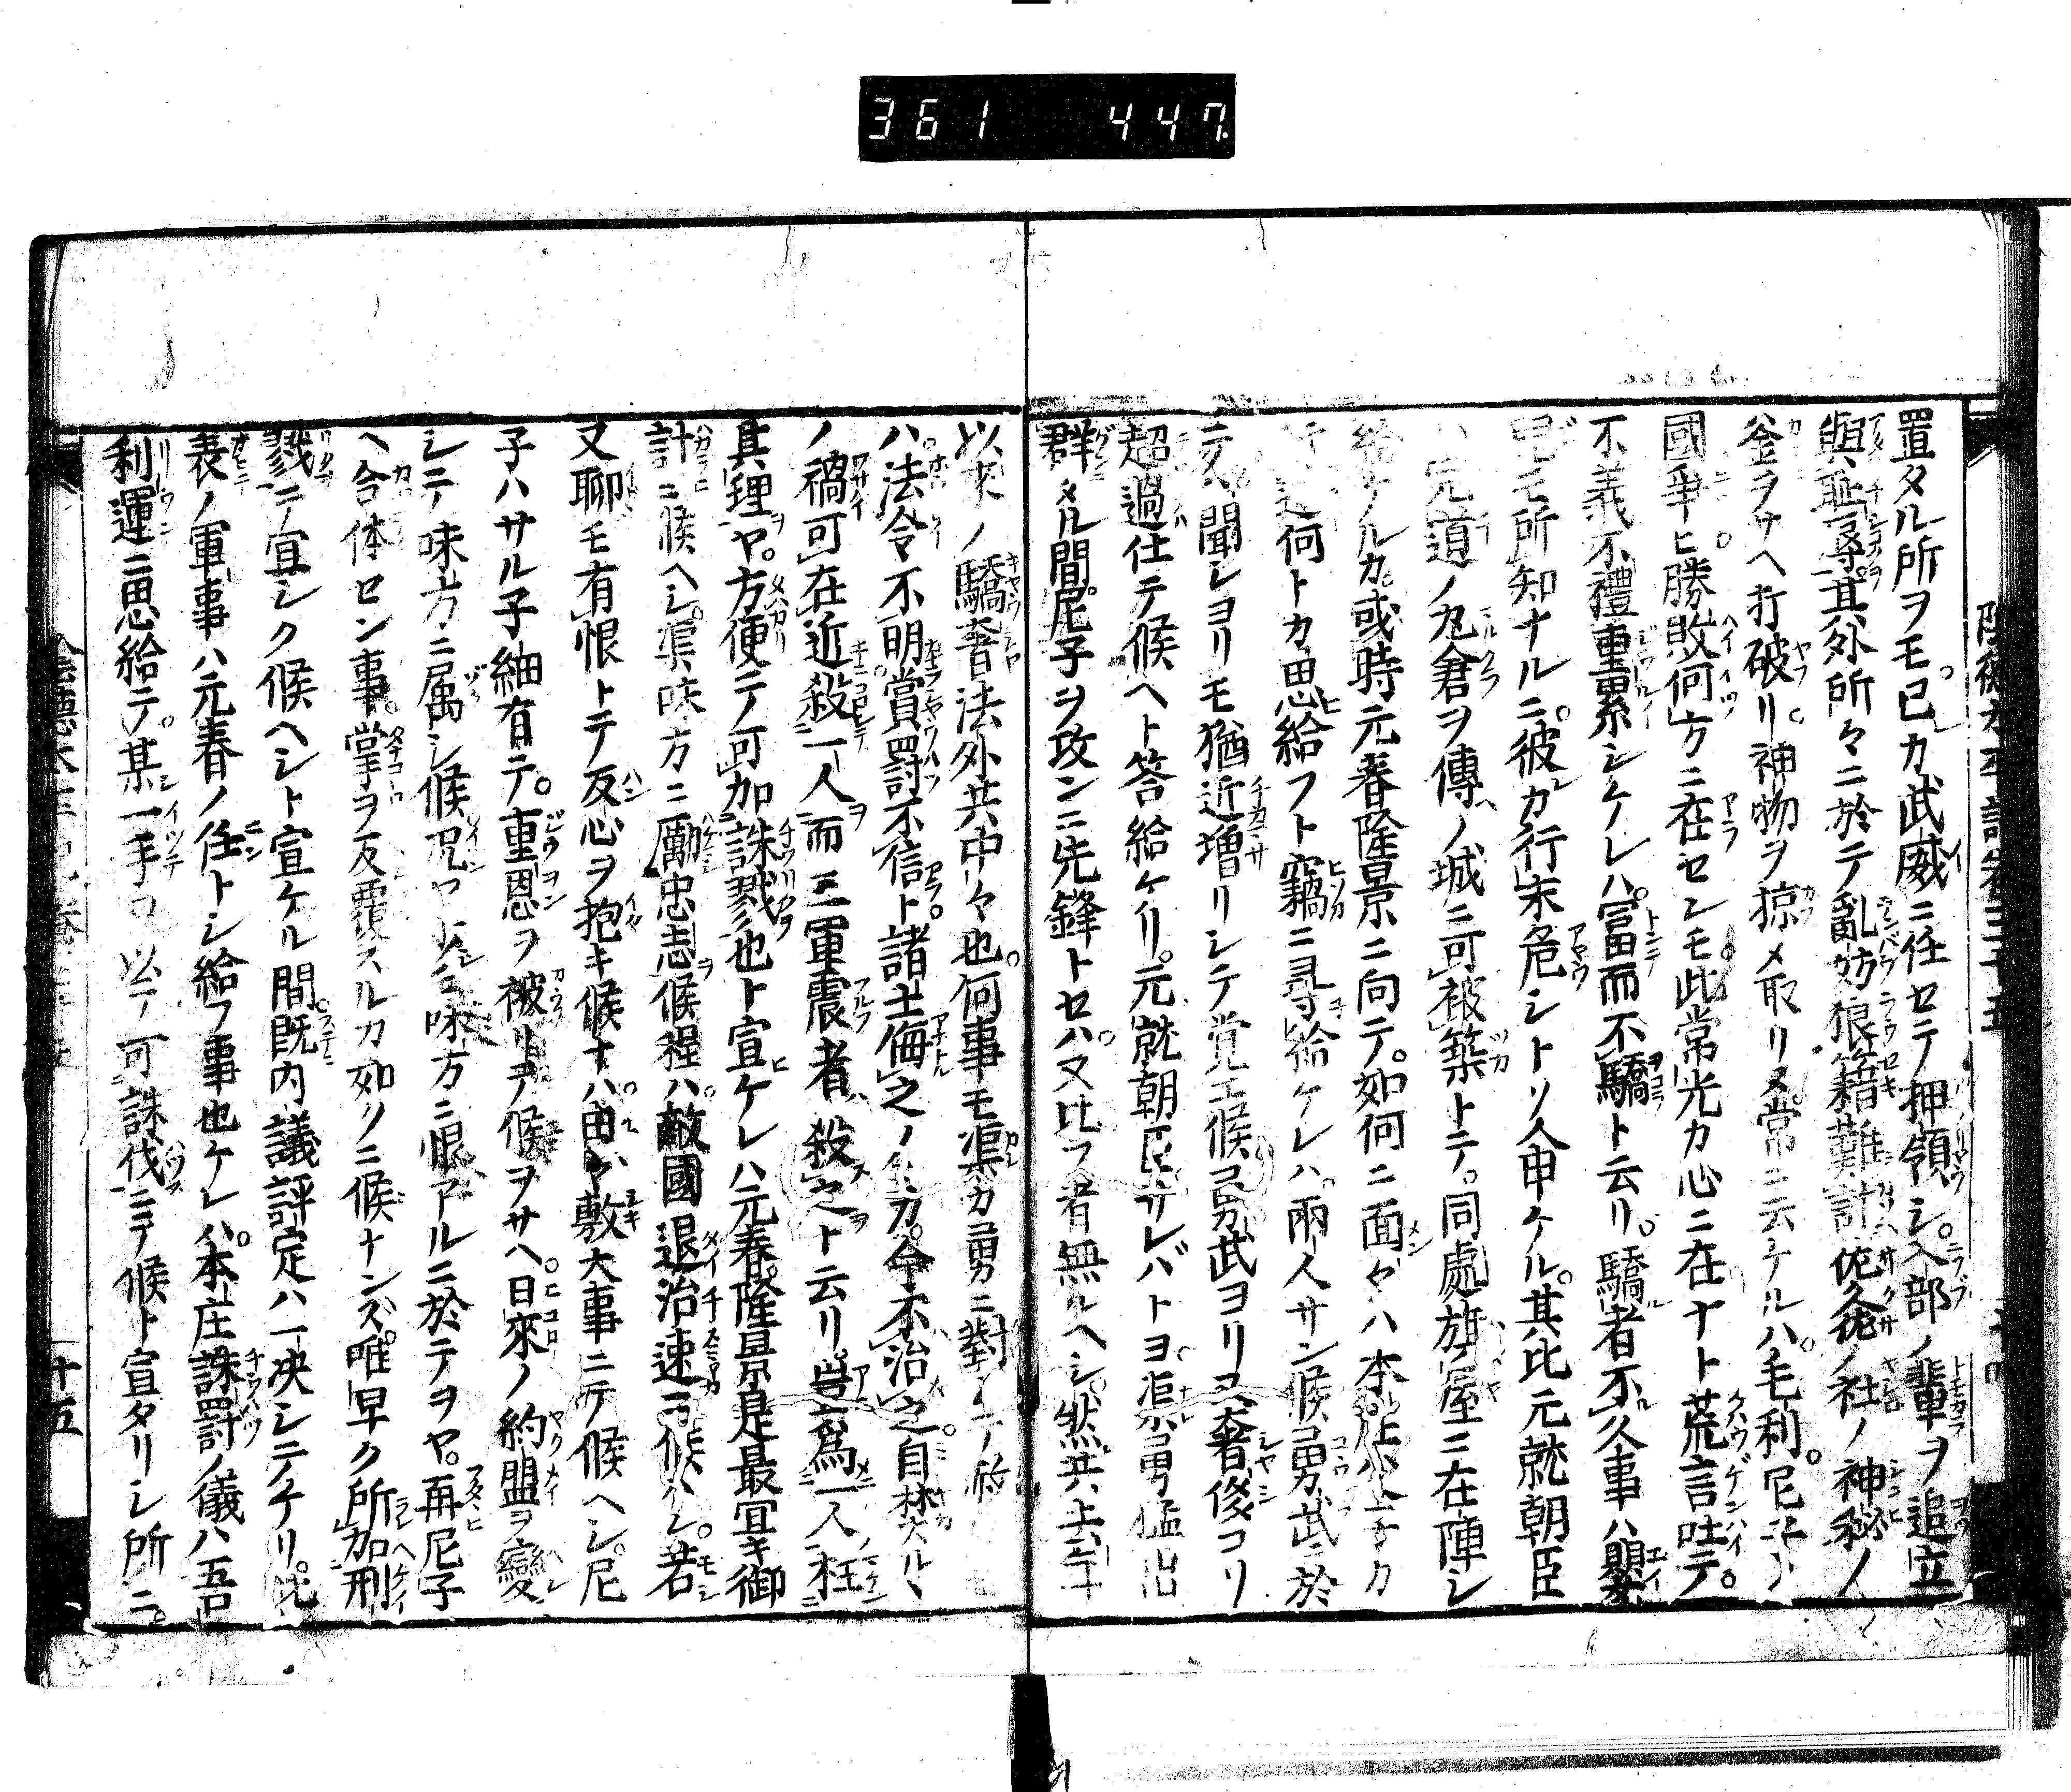 361 447
置タル所ヲモ己カ武威ニ任セテ押領シ入部ノ輩ヲ追立
與耻辱其外所々ニ於テ亂妨狼籍難計佐久佐ノ社ノ神秘ノ
釜ヲサヘ打破リ神物ヲ掠メ取リヌ常ニ云ケルハ毛利尼子ノ
國爭ヒ勝敗何方ニ在センモ此常光カ心ニ在ナト荒言吐テ
不義不禮重累シケレハ富而不驕ト云リ驕者不久事ハ
モ所知ナルニ彼カ行末危シトソ人申ケル其比元就朝臣
ハ元道ノ丸倉ヲ傳ヘノ城ニ可被築トテ同處旗屋ニ在陣シ
給ケルカ或時元春隆景ニ向テ如何ニ面々ハ本庄カ
何トカ思給フト竊ニ尋給ケレハ兩人サン候勇武ニ於
テハ聞シヨリモ猶近増リシテ覚エ候勇武ヨリヌ奢侈コソ
超過仕テ候ヘト答給ケリ元就朝臣サレバトヨ渠勇猛
群タル間尼子ヲ攻ンニ先鋒トセハ又比フ者無ルヘシ然共
以來ノ驕奢法外共中々也何事モ渠カ勇ニ對
ハ法令不明賞罰不信ト諸士侮之ノ今不治之自
ノ禍可在近殺一人而三軍震者殺之ト云リ豈爲一人枉
其理ヤ方便テ可加誅戮也ト宣ケレハ元春隆景是最宜キ御
計ニ候ヘシ渠味方ニ勵忠志候程ハ敵國退治速ニ候ヘシ若
又聊モ有恨トテ反心ヲ抱キ候ナハ由々敷大事ニテ候ヘシ尼
子ハサル子細有テ重恩ヲ被リテ候ヲサヘ日來ノ約盟ヲ變
シテ味方ニ属シ候況ヤ少モ味方ニ恨アルニ於テヲヤ再尼子
ヘ合体セン事掌ヲ反覆スルカ如クニ候ナンズ唯早ク所加刑
戮テ宜シク候ヘシト宣ケル間既内議評定ハ一决シテケリ此
表ノ軍事ハ元春ノ任トシ給フ事也ケレハ本庄誅罰ノ儀ハ吾
利運ニ思給テ某一手ヲ以テ可誅伐ニテ候ト宣タリシ所ニ
十五